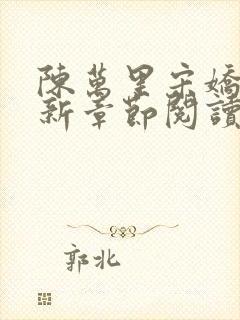 陳萬里宋嬌
新章節閱讀
郭北